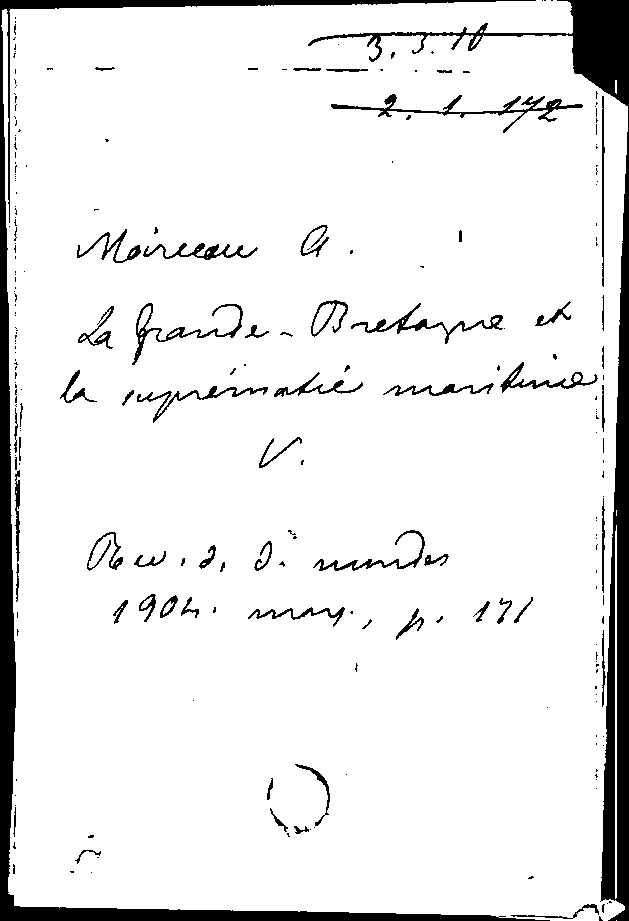 3. 3. 10
2. 1. 172
Moireau A.
La Grande-Bretagne et
la suprématie maritime
V.
Rev. d. d. mondes
1904. mars, p. 171